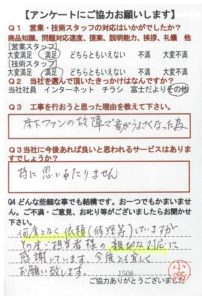 【アンケートにご協力お願いします】
Q1 営業・技術スタッフの対応はいかがでしたか?
商品知識、問題対応速度、提案、説明能力、挨拶、礼儀 他
[営業スタッフ]
大変満足 満足 どちらともいえない 不満 大変不満
[技術スタッフ]
大変満足 満足 どちらともいえない 不満 大変不満
Q2 当社を選んで頂いたきっかけはなんですか?
当社社員 インターネット チラシ 富士だより その他
Q3 工事を行おうと思った理由を教えて下さい。
床下ファンの故障で音がうるさくなった為
Q3 当社に今後あれば良いと思われるサービスはありま
すでしょうか?
特に思いあたりません
Q4 どんな些細な事でも結構です。おーつでもかまいませ
ん。ご不満・ご意見、お叱り等がございましたらお聞かせ
下さい。
何度となく依頼(修理等)していますが
その度ご担当者様の親切な対応に
感謝しています。今後とも宜しく
お願い致します。
1508
ご協力ありがとうございました